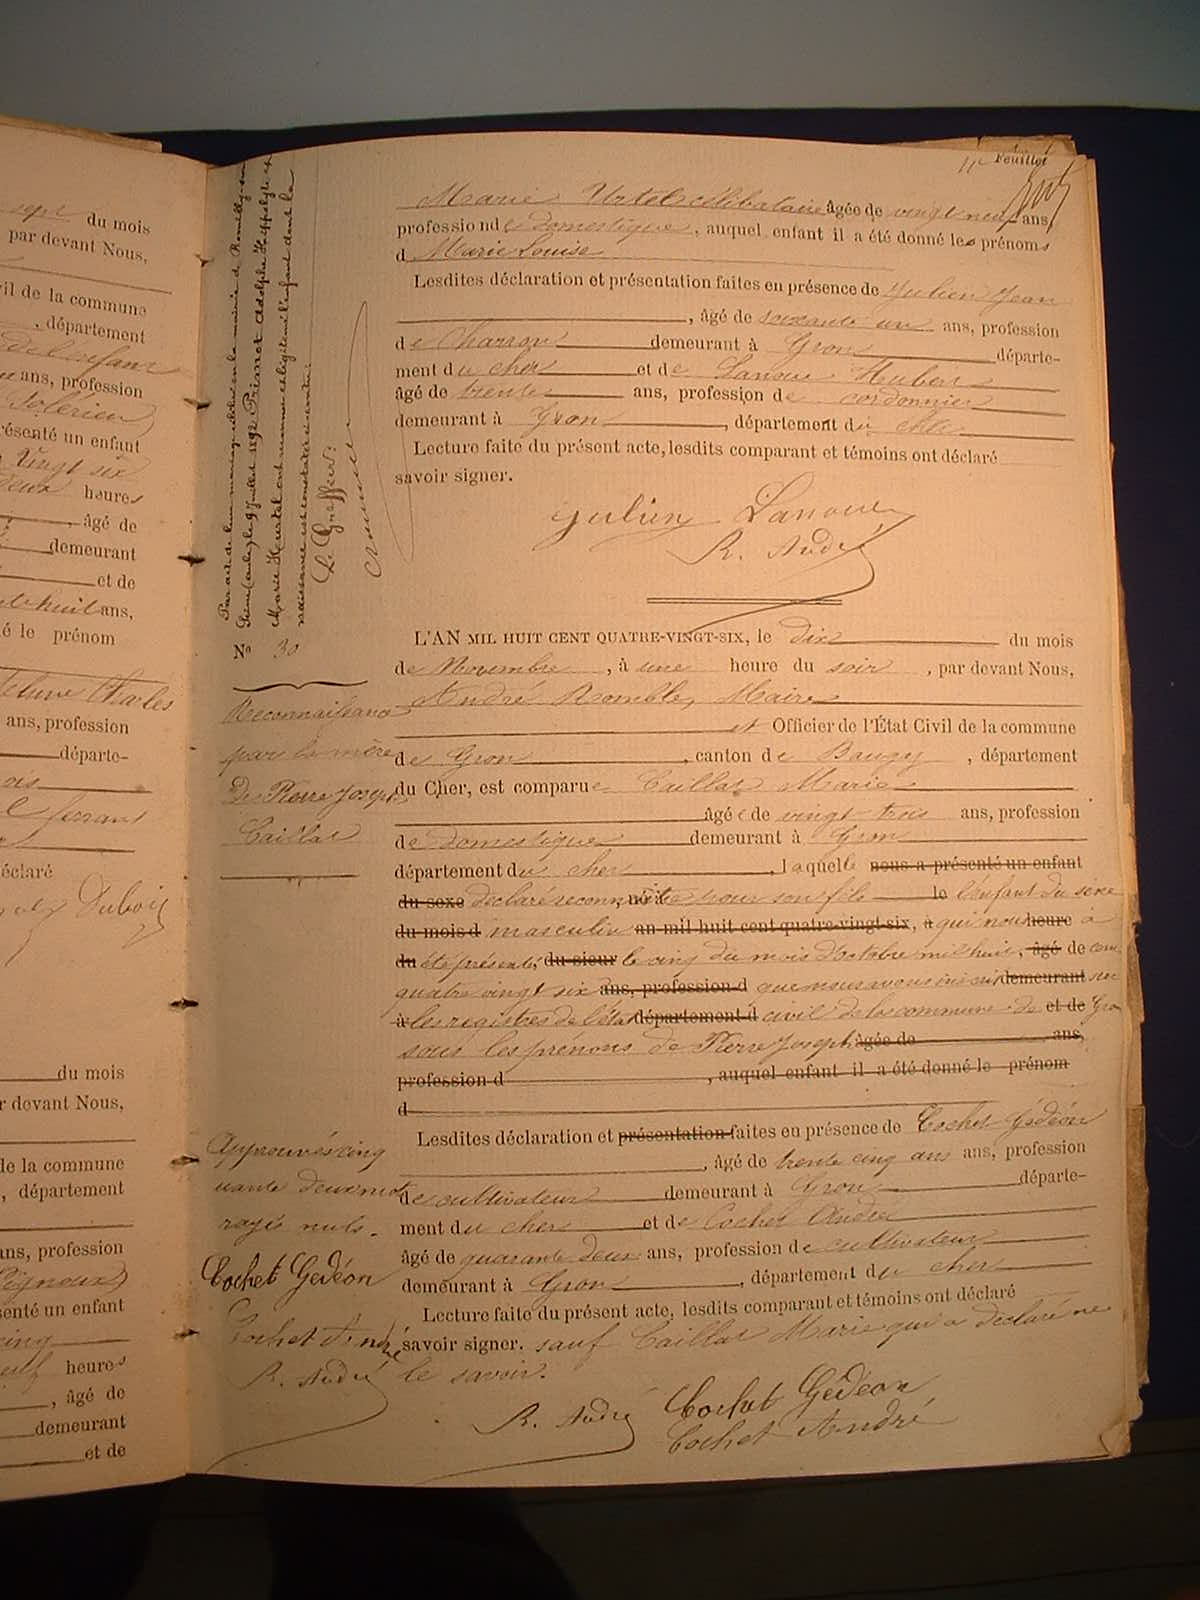 sept du mois
par devant Nous,
il de la commune
, département
de l'enfant
ans, profession
résenté un enfant
Vingt six
deux heures
âgé de
demeurant
et de
huit ans,
é le prénom
Charles
ans, profession
départe-
ois
éclaré
Dubois
du mois
r devant Nous,
de la commune
, département
ans, profession
senté un enfant
cinq
heures
, âgé de
demeurant
et de
11e Feuillet
Marie Urtel célibataire âgée de vingt neuf ans,
profession de domestique, auquel enfant il a été donné les prénoms
d Marie Louise
Lesdites déclaration et présentation faites en présence de Julien Jean
, âgé de soixante un ans, profession
de Charron demeurant à Gron départe-
ment du cher et de Lanoue Hubert
âgé de trente ans, profession de cordonnier
demeurant à Gron, département du cher
Lecture faite du présent acte, lesdits comparant et témoins ont déclaré
savoir signer.
Julien Lanoue
R. André
Par acte de leur mariage célébré en la mairie de Romilly-sur
Seine (aube) le 9 Juillet 1892 Primet Adolphe et
Marie Hurtel ont reconnu et légitimé l'enfant dont la
naissance est constatée ci-contre.
Le Greffier:
N° 30
Reconnaissance
par la mère
De Pierre Joseph
Caillat
L'AN MIL HUIT CENT QUATRE-VINGT-SIX, le dix du mois
de Novembre, à une heure du soir, par devant Nous,
André Romble, Maire
et Officier de l'État Civil de la commune
de Gron, canton de Baugy, département
du Cher, est comparue Caillat Marie
âgée de vingt trois ans, profession
de Domestique demeurant à Gron
département du cher, laquelle nous a présenté un enfant
du sexe déclaré reconnaitre pour son fils le l'enfant du sexe
du mois d masculin an mil huit cent quatre-vingt-six, à qui nou heure a
du été présenté, du sieur le cinq du mois d'octobre mil huit, âgé de cent
quatre vingt six ans, profession d que nous avons inscrit demeurant sur
à les registres de l'état département d civil de la commune de et de Gron
sous les prénoms de Pierre Joseph âgée de ans,
profession d , auquel enfant il a été donné le prénom
d
Lesdites déclaration et présentation faites en présence de Cochet Gédéon
, âgé de trente cinq ans ans, profession
de cultivateur demeurant à Gron départe-
ment du cher et de Cochet André
âgé de quarante deux ans, profession de cultivateur
demeurant à Gron, département du cher
Lecture faite du présent acte, lesdits comparant et témoins ont déclaré
savoir signer. sauf Caillat Marie qui a déclaré ne
le savoir.
R. André Cochet Gédéon
Cochet André
Approuvés cinq
uante deux mots
rayés nuls.
Cochet Gédéon
Cochet André
R. André